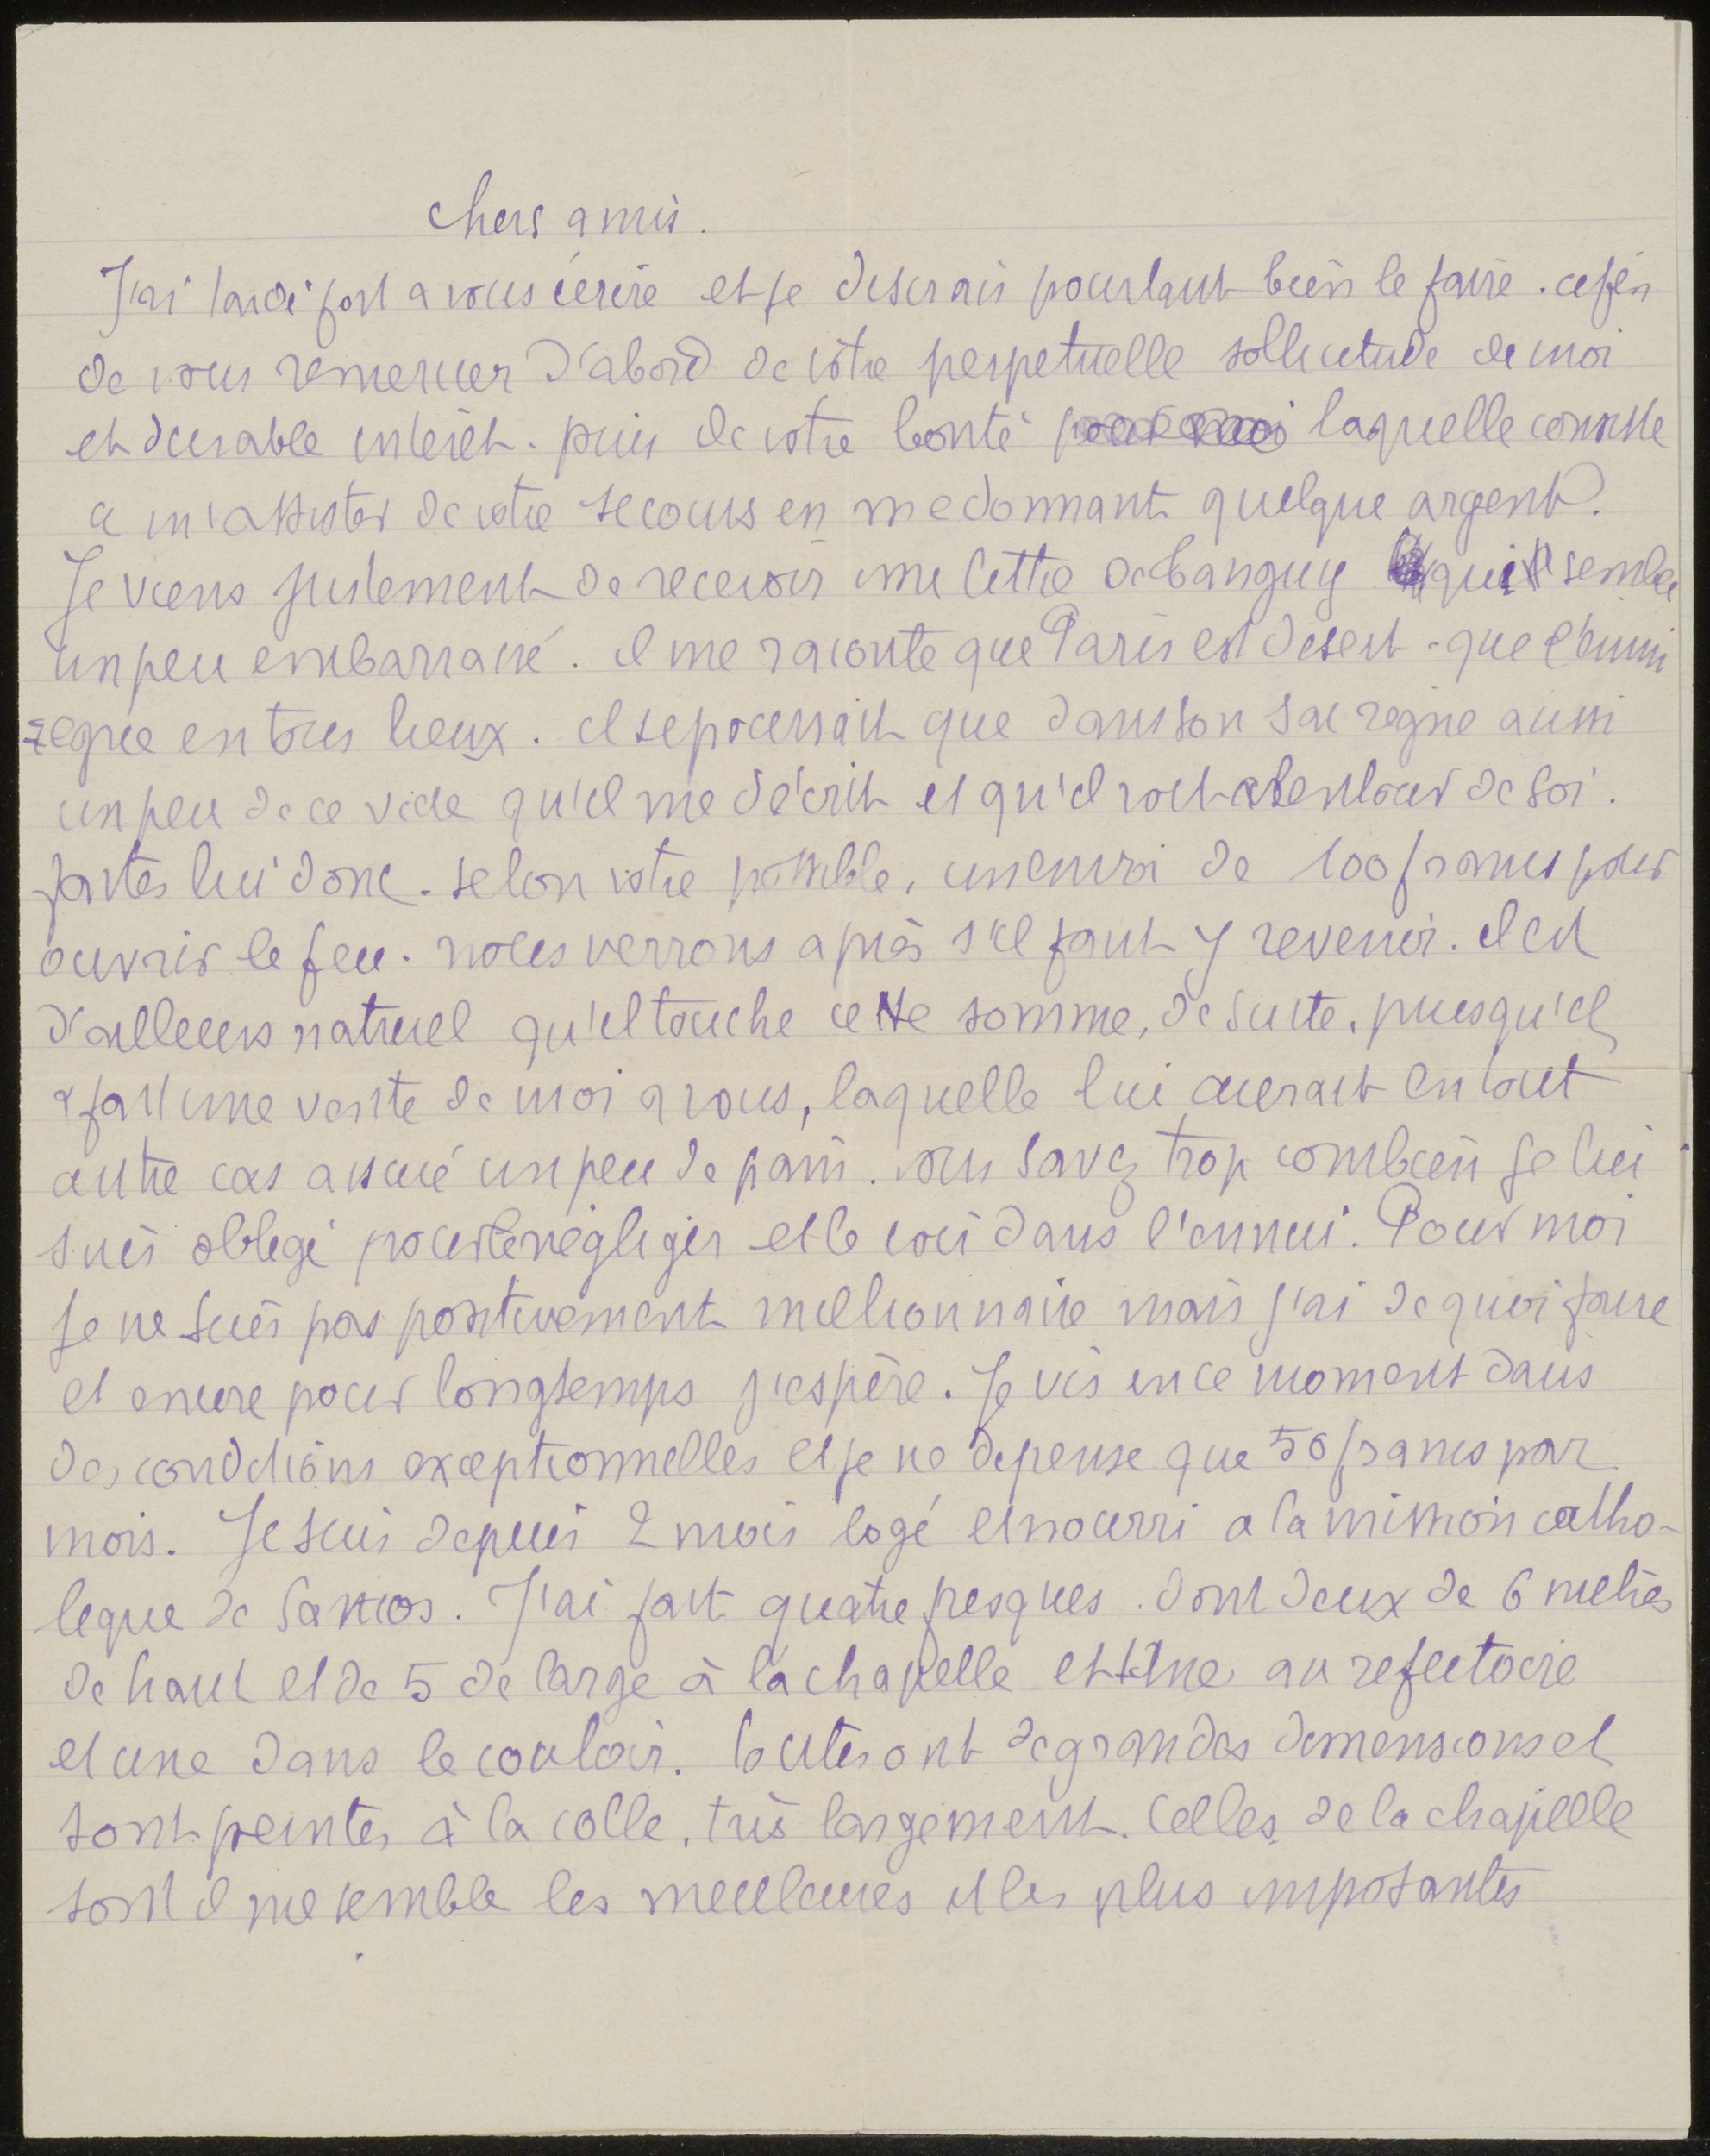 chers amis.
J'ai tardé fort a vous écrire et je désirais pourtant bien le faire. afin
de vous remercier d'abord de votre perpetuelle sollicitude de moi
et durable intérêt. puis de votre bonté laquelle consiste
a m'assister de votre secours en me donnant quelque argent.
Je viens justement de recevoir une lettre de Tanguy qui semble
un peu embarrassé. il me raconte que Paris est désert. que l'ennui
règne en tous lieux. il se pourrait que dans son sac règne aussi
un peu de ce vide qu'il me décrit et qu'il voit alentour de soi.
faites lui donc. selon votre possible, un envoi de 100 francs pour
ouvrir le feu. nous verrons après s'il faut y revenir. il est
d'ailleurs naturel qu'il touche cette somme, de suite, puisqu'il
a fait une vente de moi a vous, laquelle lui aurait en tout
autre cas assuré un peu de pain. vous savez trop combien je lui
suis obligé pour le négliger et le voir dans l'ennui. Pour moi
je ne suis pas positivement millionnaire mais j'ai de quoi faire
et encore pour longtemps j'espère. Je vis en ce moment dans
des conditions exceptionnelles et je ne depense que 50 francs par
mois. Je suis depuis 2 mois logé et nourri a la mission catho-
lique de Samos. J'ai fait quatre fresques. dont deux de 6 metres
de haut et de 5 de large à la chapelle et une au refectoire
et une dans le couloir. toutes ont de grandes dimensions et
sont peintes à la colle. très largement. Celles de la chapelle
sont il me semble les meilleures et les plus imposantes